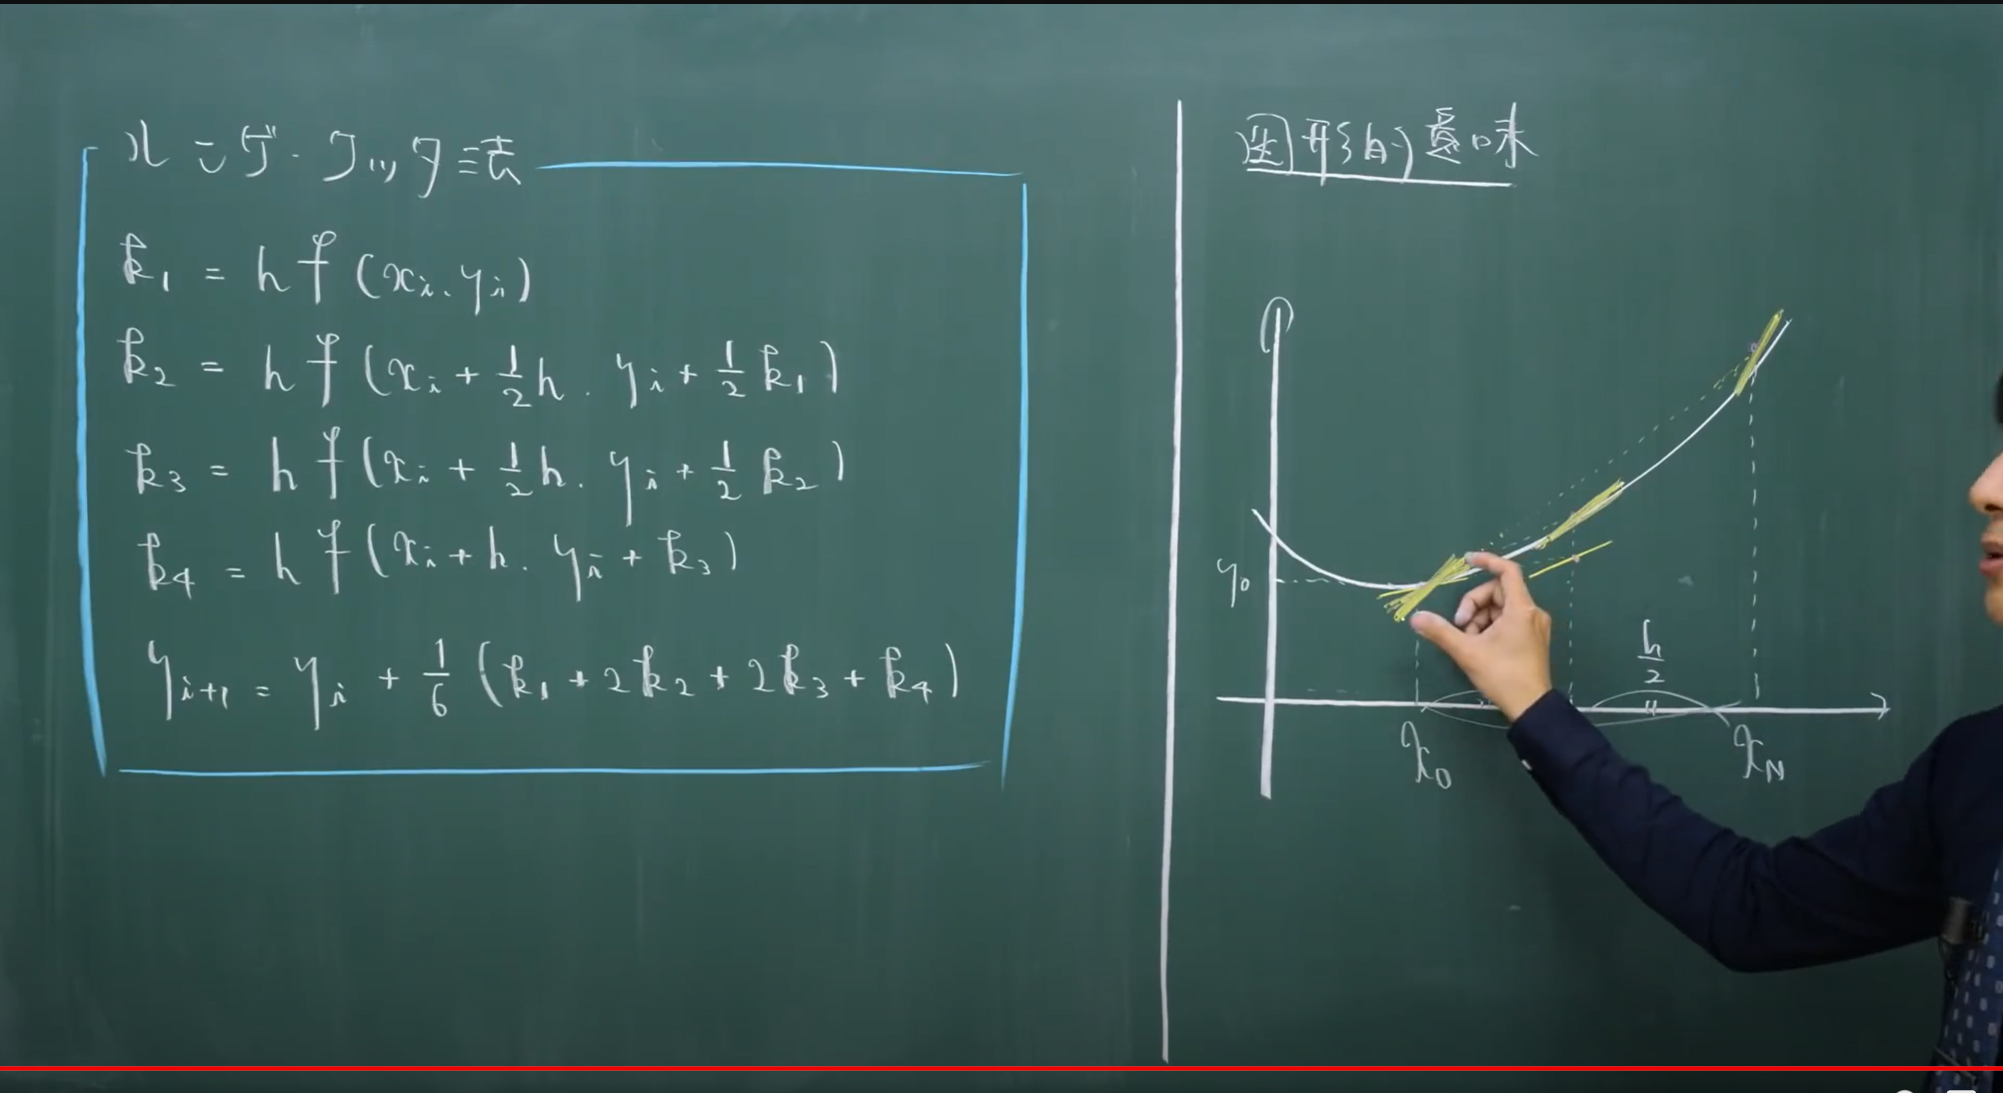 ルンゲ・クッタ法
k₁ = hf(xᵢ, yᵢ)
k₂ = hf(xᵢ + 1/2 h, yᵢ + 1/2 k₁)
k₃ = hf(xᵢ + 1/2 h, yᵢ + 1/2 k₂)
k₄ = hf(xᵢ + h, yᵢ + k₃)
yᵢ₊₁ = yᵢ + 1/6 (k₁ + 2k₂ + 2k₃ + k₄)
図形的意味
y₀
h/2
x₀
x_N